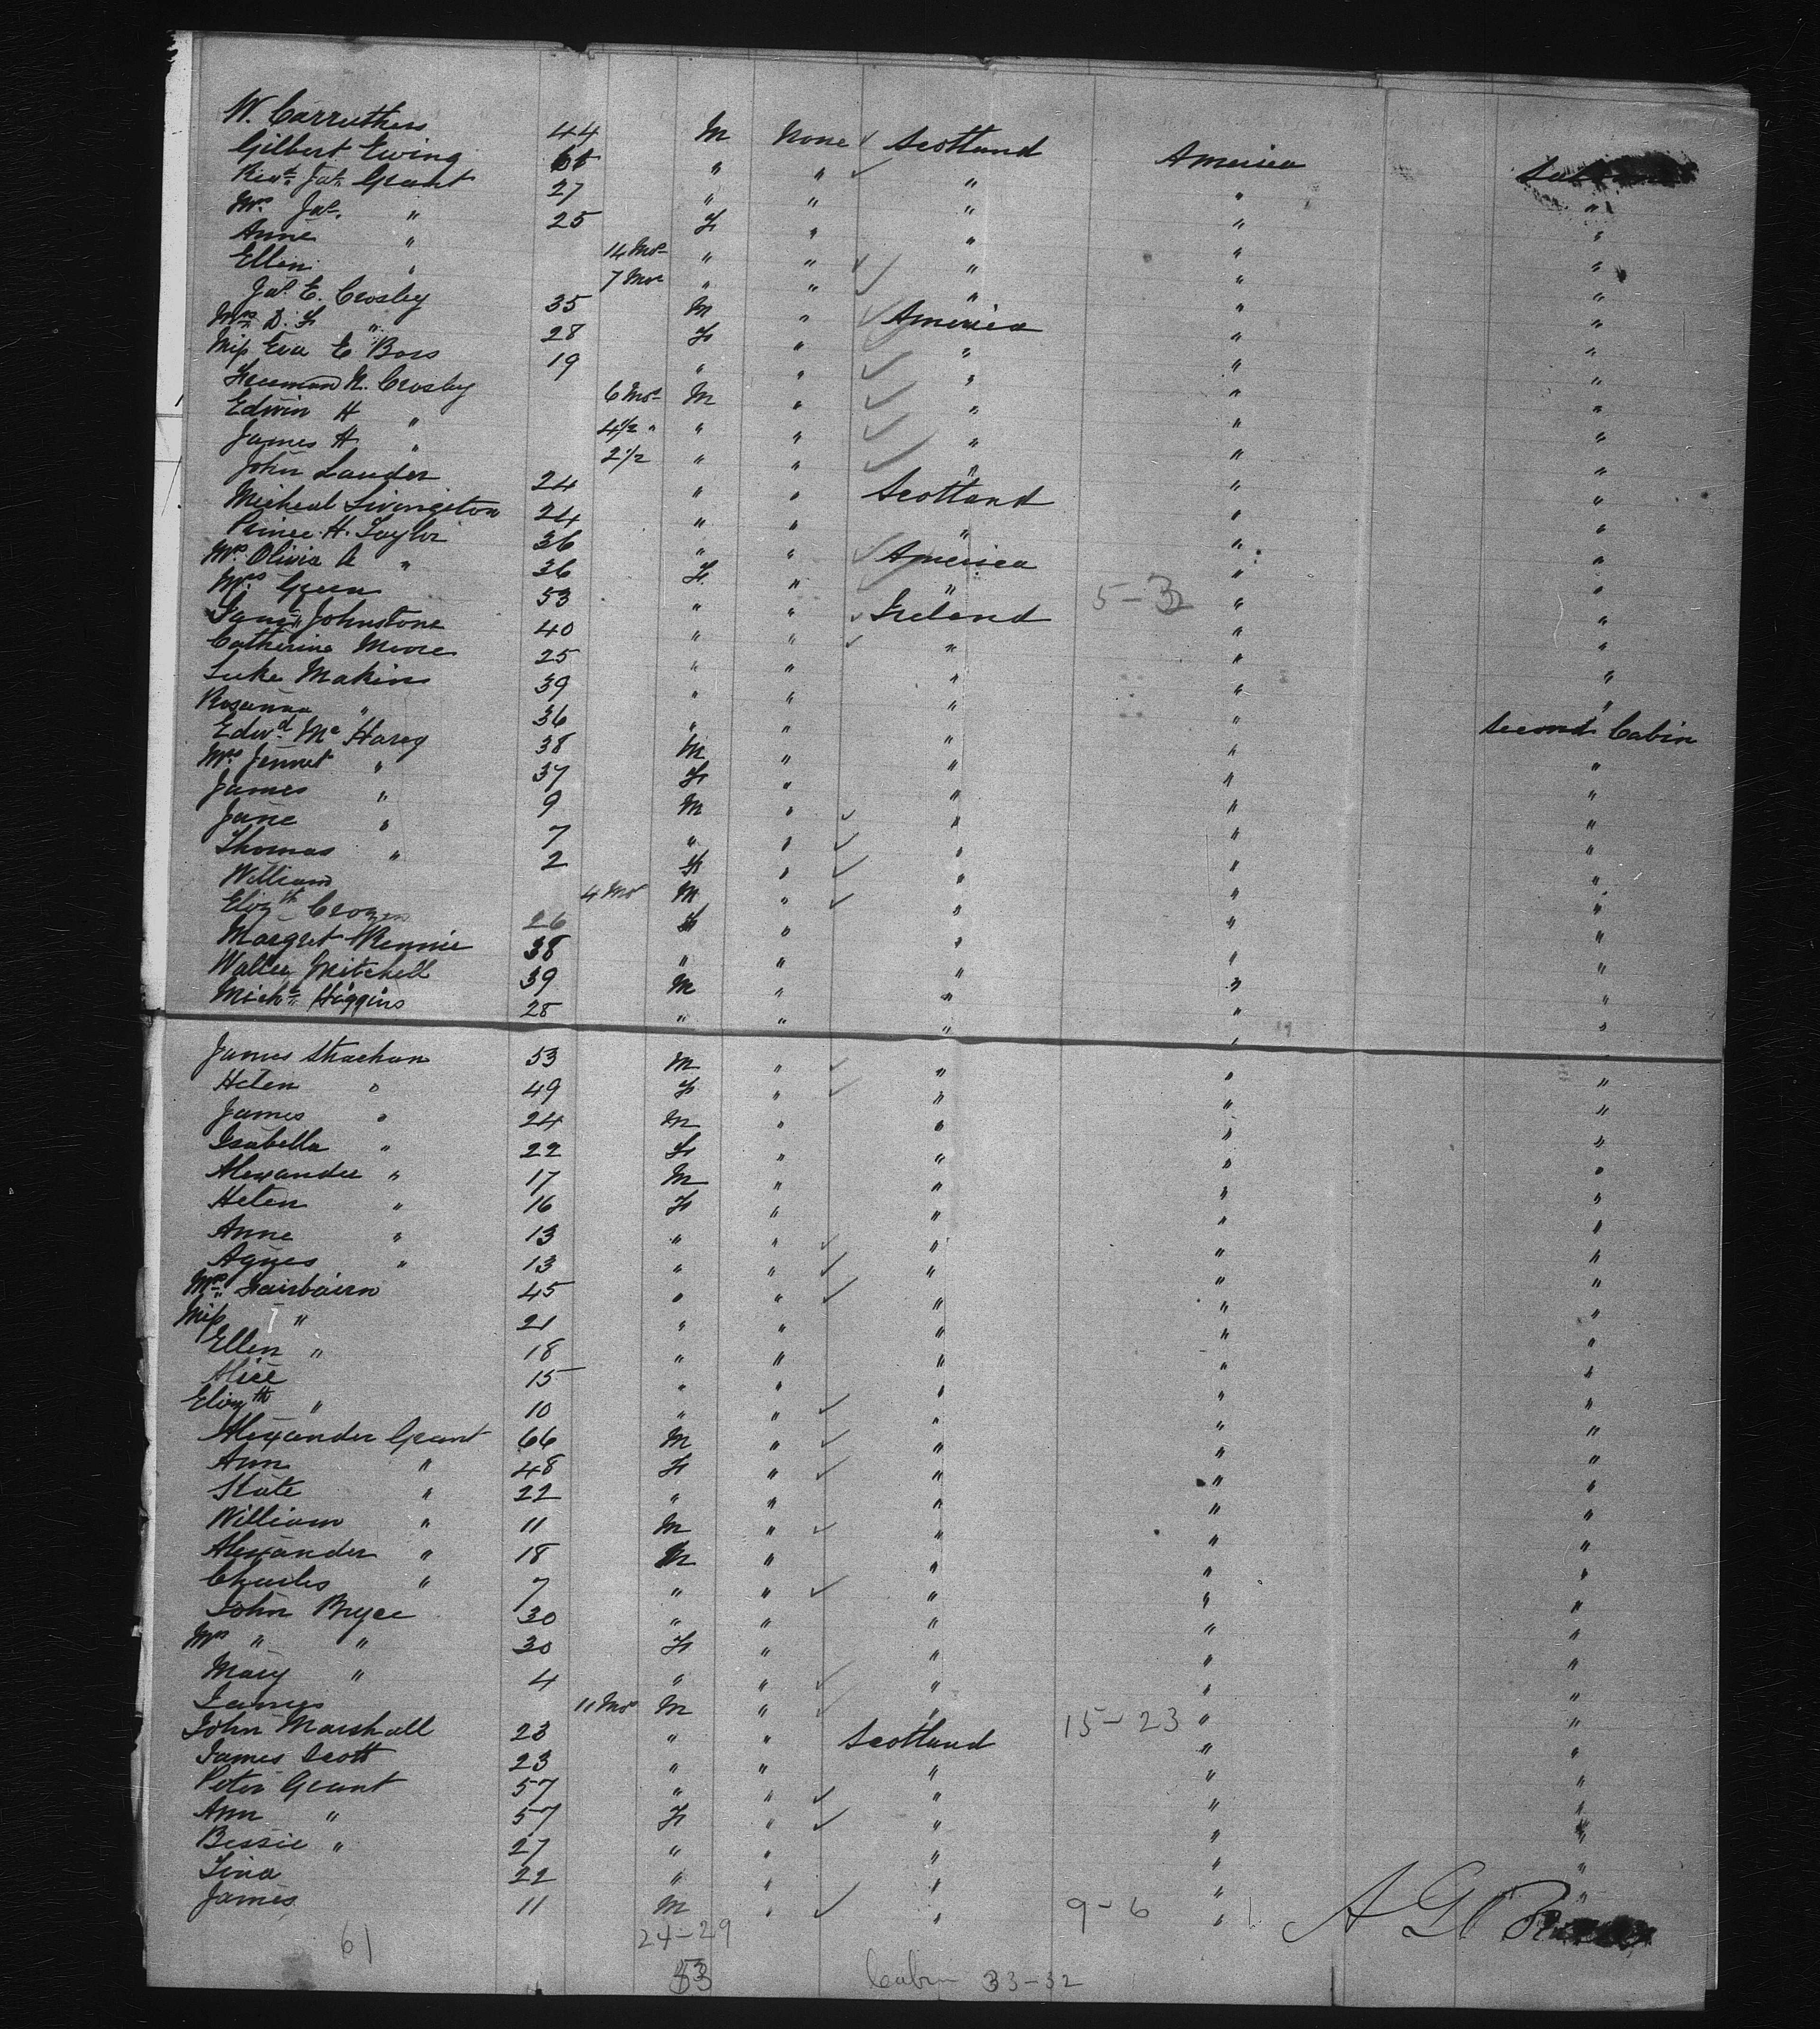 W. Carruthers 44 M None ✓ Scotland America
Gilbert Ewing " " ✓ " " "
Revd. Jas. Grant 27 " " " " "
Mrs. Jas. " 25 F " " " "
Anne " 14 Mos " " ✓ " " "
Ellen " 7 Mos " " ✓ " " "
Jas. E. Crosby 35 M " ✓ America " "
Mrs D. F. " 28 F " " " "
Miss Eva E Boss 19 " " ✓ " " "
Freeman N. Crosby 6 Mos M " ✓ " " "
Edwin H " 4 1/2 " " " ✓ " " "
James H " 2 1/2 " " ✓ " " "
John Lauder 24 " " Scotland " "
Micheal Livingston 24 " " " " "
Prince H. Taylor 36 " " ✓ America " "
Mrs. Olivia A " 36 F " " " "
Mrs Green 53 " " ✓ Ireland 5-32 " "
Johnstone 40 " " ✓ " " "
Catherine Moore 25 " " " " "
Luke Makins 39 " " " " "
Rosanna " 36 " " " " Second Cabin
Edwd. Mc Harey 38 M " " " "
Mrs Jennet " 37 F " " " "
James " 9 M " ✓ " " "
Jane " 7 " " ✓ " " "
Thomas " 2 F " ✓ " " "
William 4 Mos M " ✓ " " "
Elizth 26 F " " " "
Margret Rennie 38 " " " " "
Walter Mitchell 39 M " " " "
Michl. Higgins 28 " " " " "
James Strachan 53 M " ✓ " " "
Helen " 49 F " ✓ " " "
James " 24 M " " " "
Isabella " 22 F " " " "
Alexander " 17 M " " " "
Helen " 16 F " " " "
Anne " 13 " " ✓ " " "
Agnes " 13 " " ✓ " " "
Mrs. Fairbairn 45 " " ✓ " " "
Miss " 21 " " " " "
Ellen " 18 " " " " "
Alice 15 " " " " "
Elizth " 10 " " ✓ " " "
Alexander Grant 66 M " ✓ " " "
Ann " 48 F " ✓ " " "
Kate " 22 " " " " "
William " 11 M " ✓ " " "
Alexander " 18 M " " " "
Charles " 7 " " ✓ " " "
John Bryce 30 " " " " "
Mrs " " 30 F " " " "
Mary " 4 " " ✓ " " "
James 11 Mos M " ✓ " " "
John Marshall 23 " " Scotland 15-23 " "
James Scott 23 " " " " "
Peter Grant 57 " " ✓ " " "
Ann " 57 F " ✓ " " "
Bessie " 27 " " " " "
Tina 22 " " " " "
James 11 M " ✓ " 9-6 "
61 24-29
53 Cabin 33-32